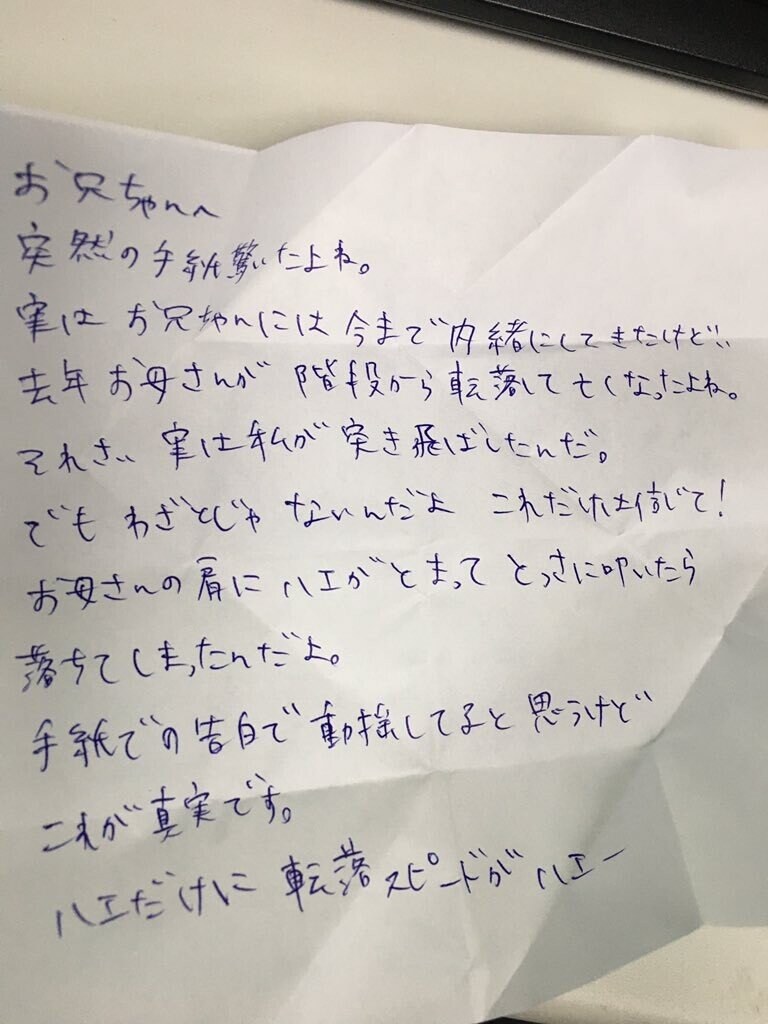 お兄ちゃんへ
突然の手紙驚いたよね。
実はお兄ちゃんには今まで内緒にしてきたけど…
去年お母さんが階段から転落して亡くなったよね。
それさ、実は私が突き飛ばしたんだ。
でもわざとじゃないんだよ これだけは信じて!
お母さんの肩にハエがとまってとっさに叩いたら
落ちてしまったんだよ。
手紙での告白で動揺してると思うけど
これが真実です。
ハエだけに転落スピードがハエー